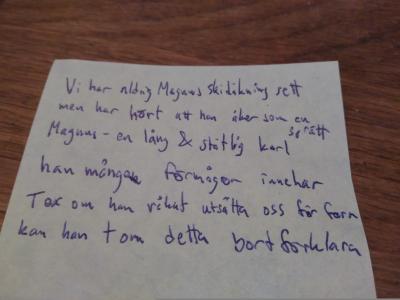 Vi har aldrig Magnus skidåkning sett
men har hört att han åker som en sprätt
Magnus - en lång & ståtlig karl
han många förmågor innehar
Tex om han råkat utsätta oss för farn
kan han tom detta bortförklara